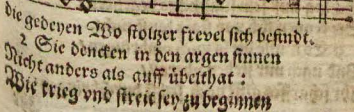 die gedeyen Wo stoltzer frevel sich befindt.
2 Sie dencken in den argen sinnen
Nicht anders als auff übelthat :
Wie krieg vnd streit sey zu beginnen